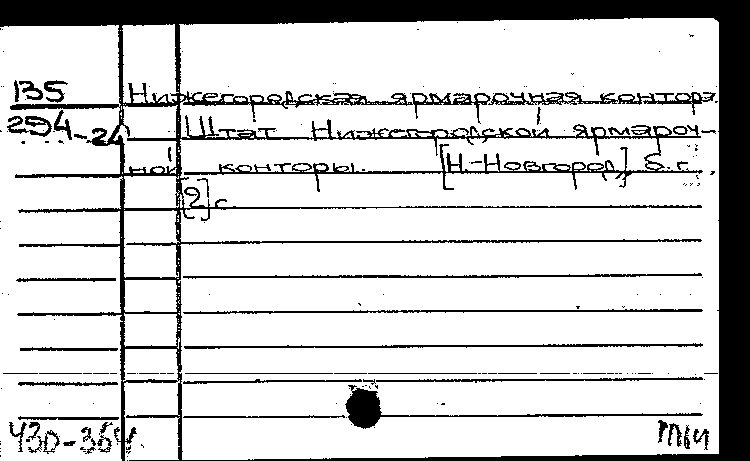 135 Нижегородская ярмарочная контора
294-24 Штат Нижегородской ярмароч-
ной конторы. [Н.-Новгород], б. г.
[2] с.
430-364